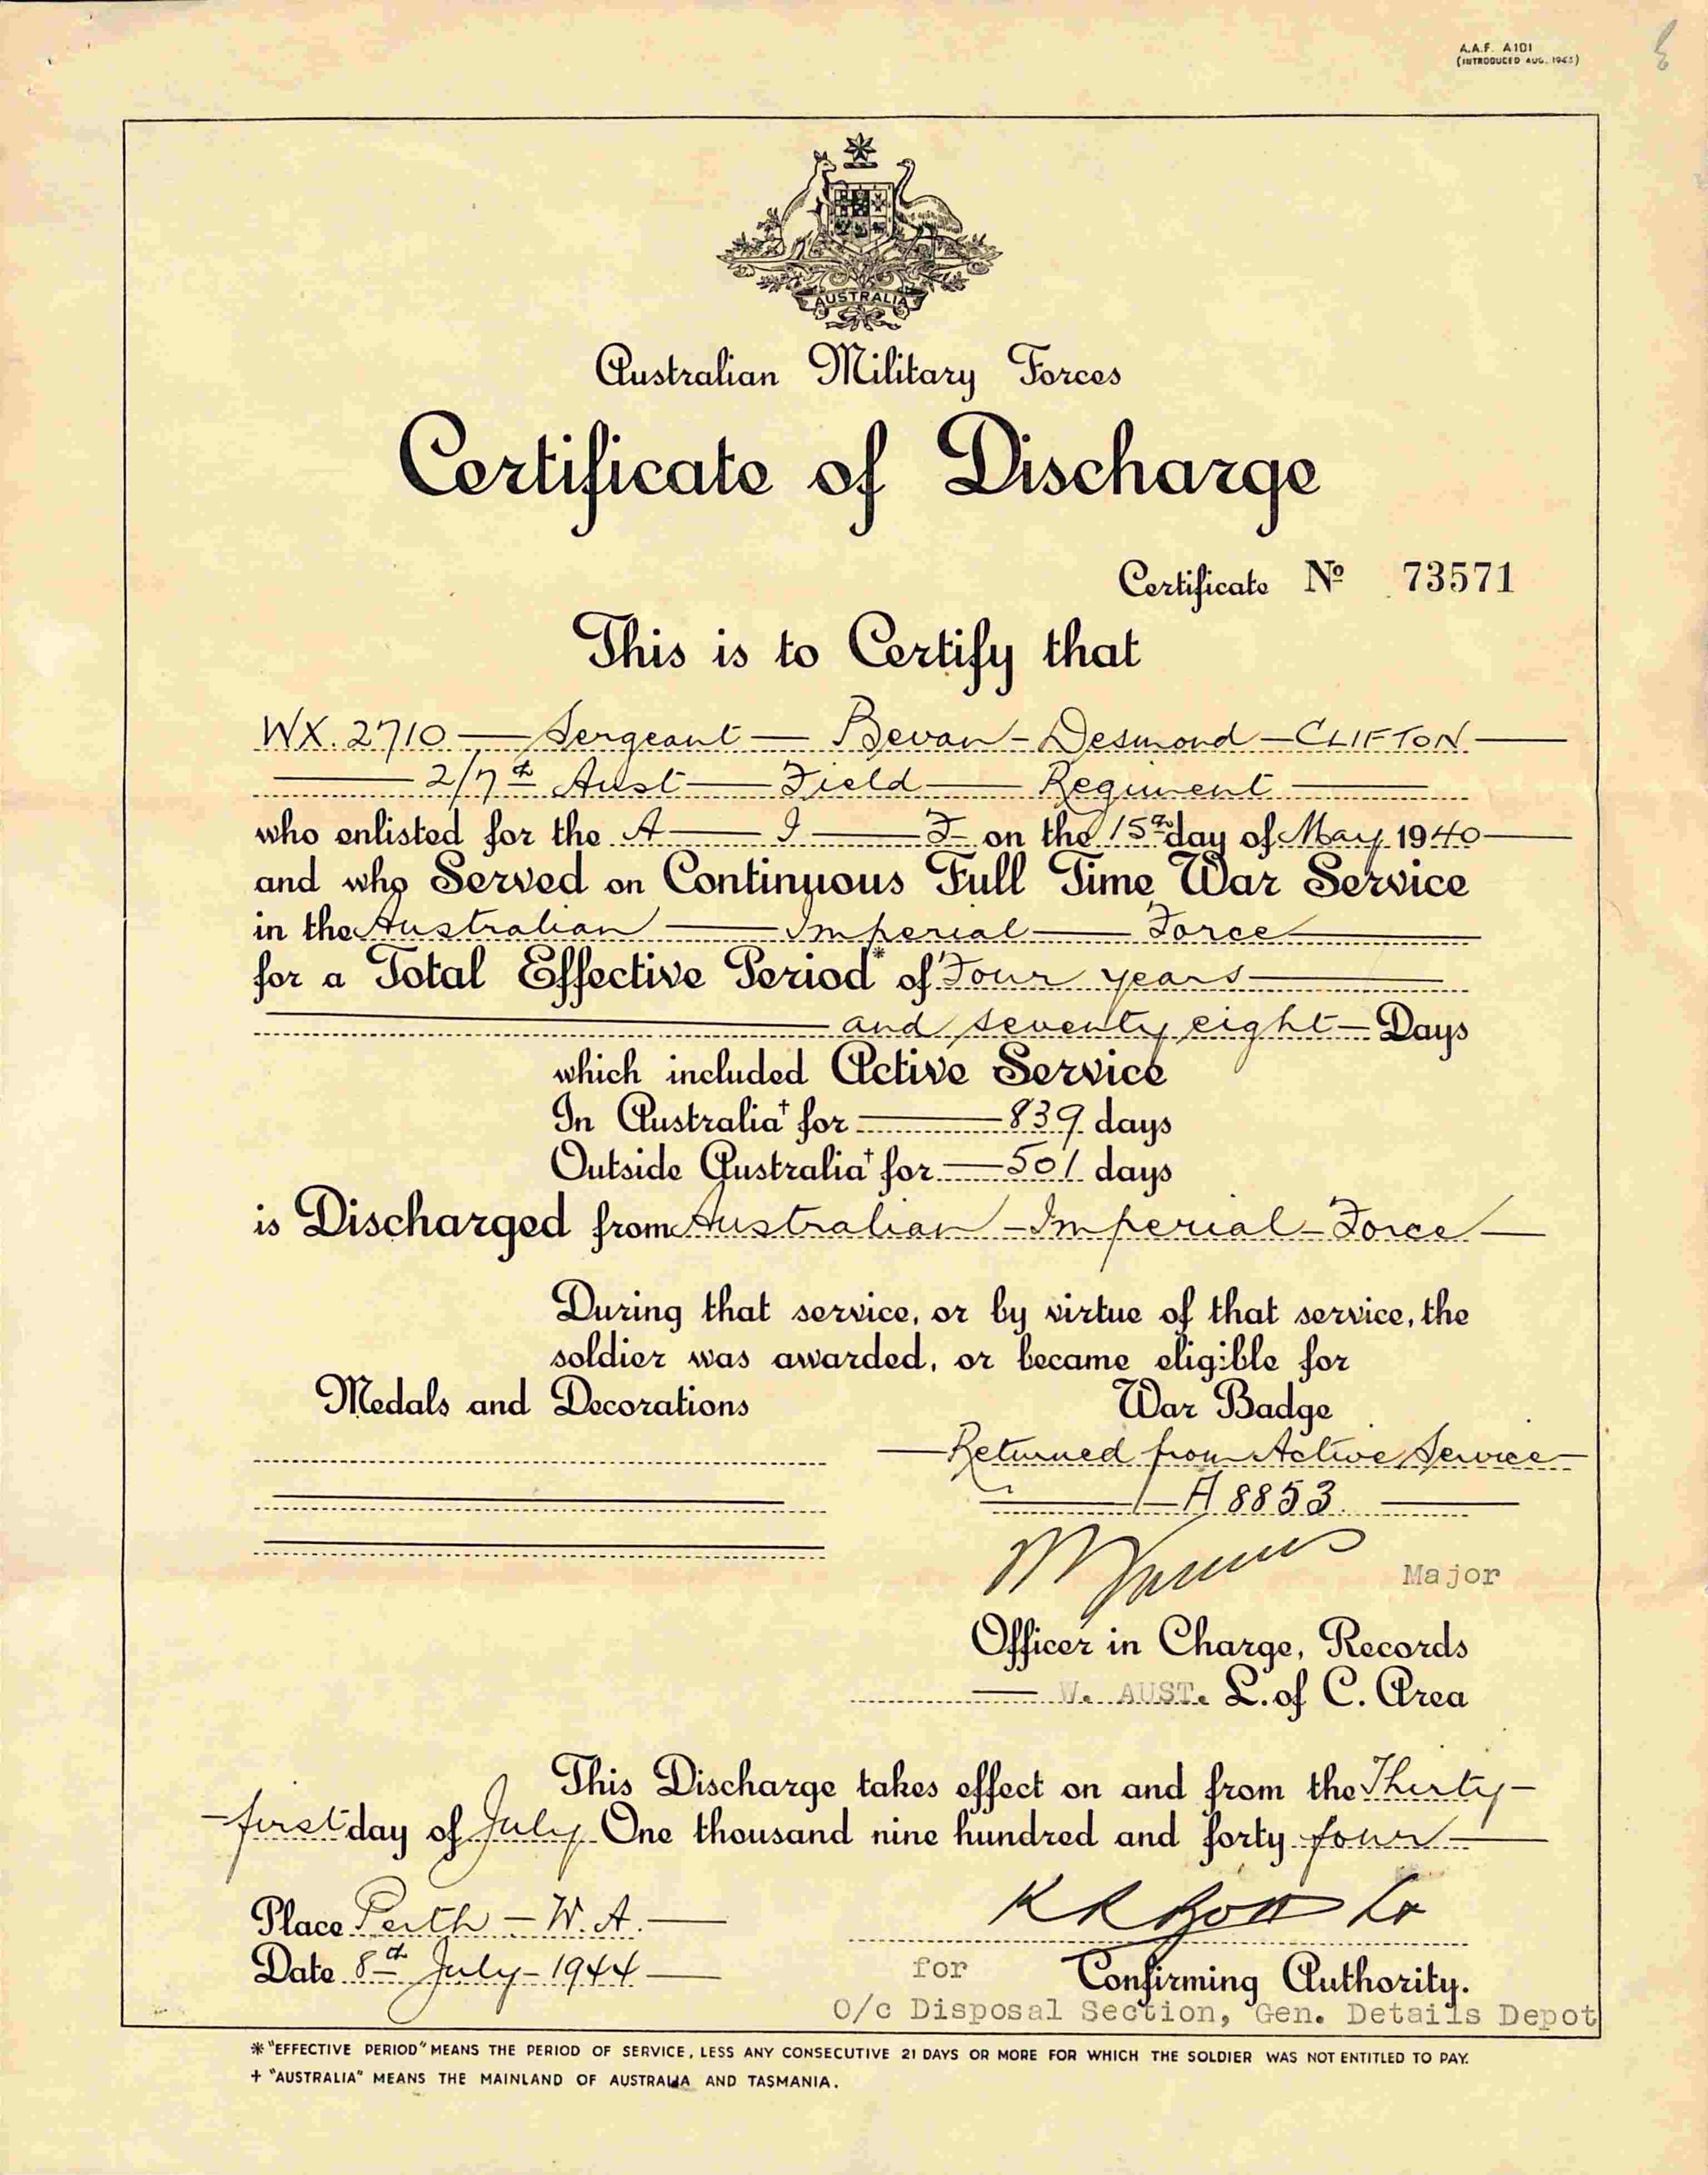 A.A.F. A101
(INTRODUCED AUG. 1943)
AUSTRALIA
Australian Military Forces
Certificate of Discharge
Certificate No 73571
This is to Certify that
WX. 2710 — Sergeant — Bevan - Desmond - CLIFTON
2/7th Aust — Field — Regiment
who enlisted for the A — I — F on the 15th day of May 1940
and who Served on Continuous Full Time War Service
in the Australian — Imperial — Force
for a Total Effective Period* of Four years
and seventy eight — Days
which included Active Service
In Australia† for — 839 days
Outside Australia† for — 501 days
is Discharged from Australian - Imperial - Force
During that service, or by virtue of that service, the
soldier was awarded, or became eligible for
Medals and Decorations
War Badge
Returned from Active Service
A 8853
Major
Officer in Charge, Records
W. AUST. L. of C. Area
This Discharge takes effect on and from the Thirty-
first day of July One thousand nine hundred and forty four
Place Perth - W.A.
Date 8th July - 1944
for Confirming Authority.
O/c Disposal Section, Gen. Details Depot
* "EFFECTIVE PERIOD" MEANS THE PERIOD OF SERVICE, LESS ANY CONSECUTIVE 21 DAYS OR MORE FOR WHICH THE SOLDIER WAS NOT ENTITLED TO PAY.
+ "AUSTRALIA" MEANS THE MAINLAND OF AUSTRALIA AND TASMANIA.